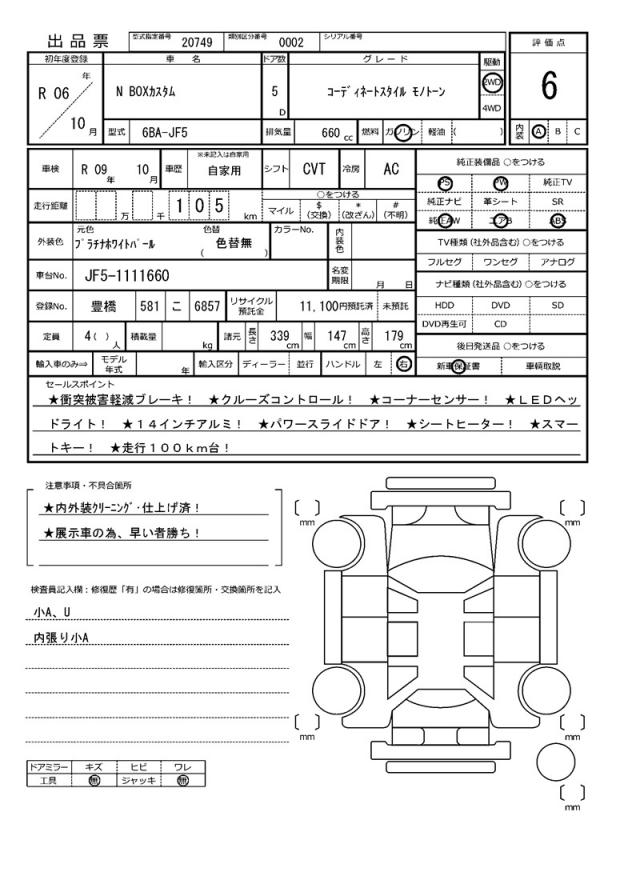 出品票
型式指定番号 20749 類別区分番号 0002 シリアル番号
評価点
6
内装 A B C
初年度登録 車名 ドア数 グレード 駆動
R 06 年 10 月
N BOXカスタム
5 D
コーディネートスタイル モノトーン
2WD
4WD
型式 6BA-JF5 排気量 660 cc 燃料 ガソリン 軽油 ( )
車検 R 09 年 10 月 車歴 ※未記入は自家用 自家用 シフト CVT 冷房 AC
走行距離 万 千 1 0 5 km
○をつける
マイル $(交換) *(改ざん) #(不明)
外装色 元色 プラチナホワイトパール 色替 色替無 ( ) カラーNo. 内装色
車台No. JF5-1111660 名変期限 月 日
登録No. 豊橋 581 こ 6857 リサイクル預託金 11,100円預託済 未預託
定員 4( )人 積載量 kg 諸元 長さ 339 cm 幅 147 cm 高さ 179 cm
輸入車のみ⇒ モデル年式 年 輸入区分 ディーラー 並行 ハンドル 左 右
純正装備品 ○をつける
PS PW 純正TV
純正ナビ 革シート SR
純正AW エアB ABS
TV種類 (社外品含む) ○をつける
フルセグ ワンセグ アナログ
ナビ種類 (社外品含む) ○をつける
HDD DVD SD
DVD再生可 CD
後日発送品 ○をつける
新車保証書 車輌取説
セールスポイント
★衝突被害軽減ブレーキ！ ★クルーズコントロール！ ★コーナーセンサー！ ★ＬＥＤヘッ
ドライト！ ★１４インチアルミ！ ★パワースライドドア！ ★シートヒーター！ ★スマー
トキー！ ★走行１００ｋｍ台！
注意事項・不具合箇所
★内外装クリーニング・仕上げ済！
★展示車の為、早い者勝ち！
検査員記入欄：修復歴「有」の場合は修復箇所・交換箇所を記入
小A、U
内張り小A
ドアミラー キズ ヒビ ワレ
工具 無 ジャッキ 無
[ ] mm
[ ] mm
[ ] mm
[ ] mm
[ ] mm